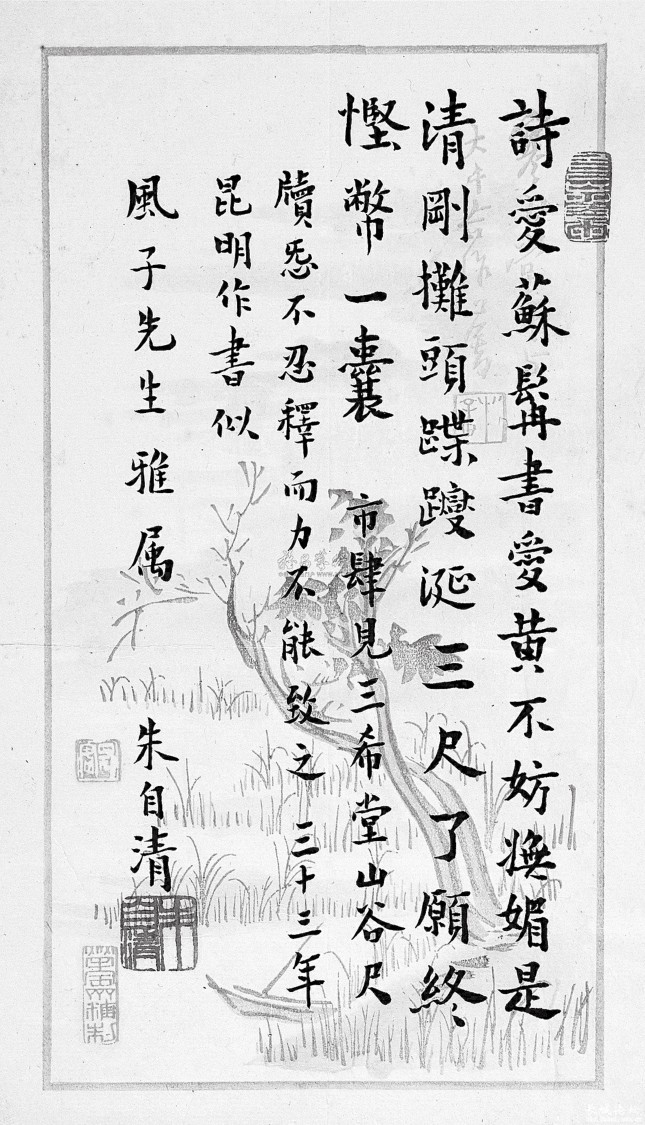 詩愛蘇髯書愛黃不妨嫵媚是
清剛攤頭蹀躞涎三尺了願終
慳幣一囊 市肆見三希堂山谷尺
牘愛不忍釋而力不能致之 三十三年
昆明作書似
風子先生雅属 朱自清
朱自清